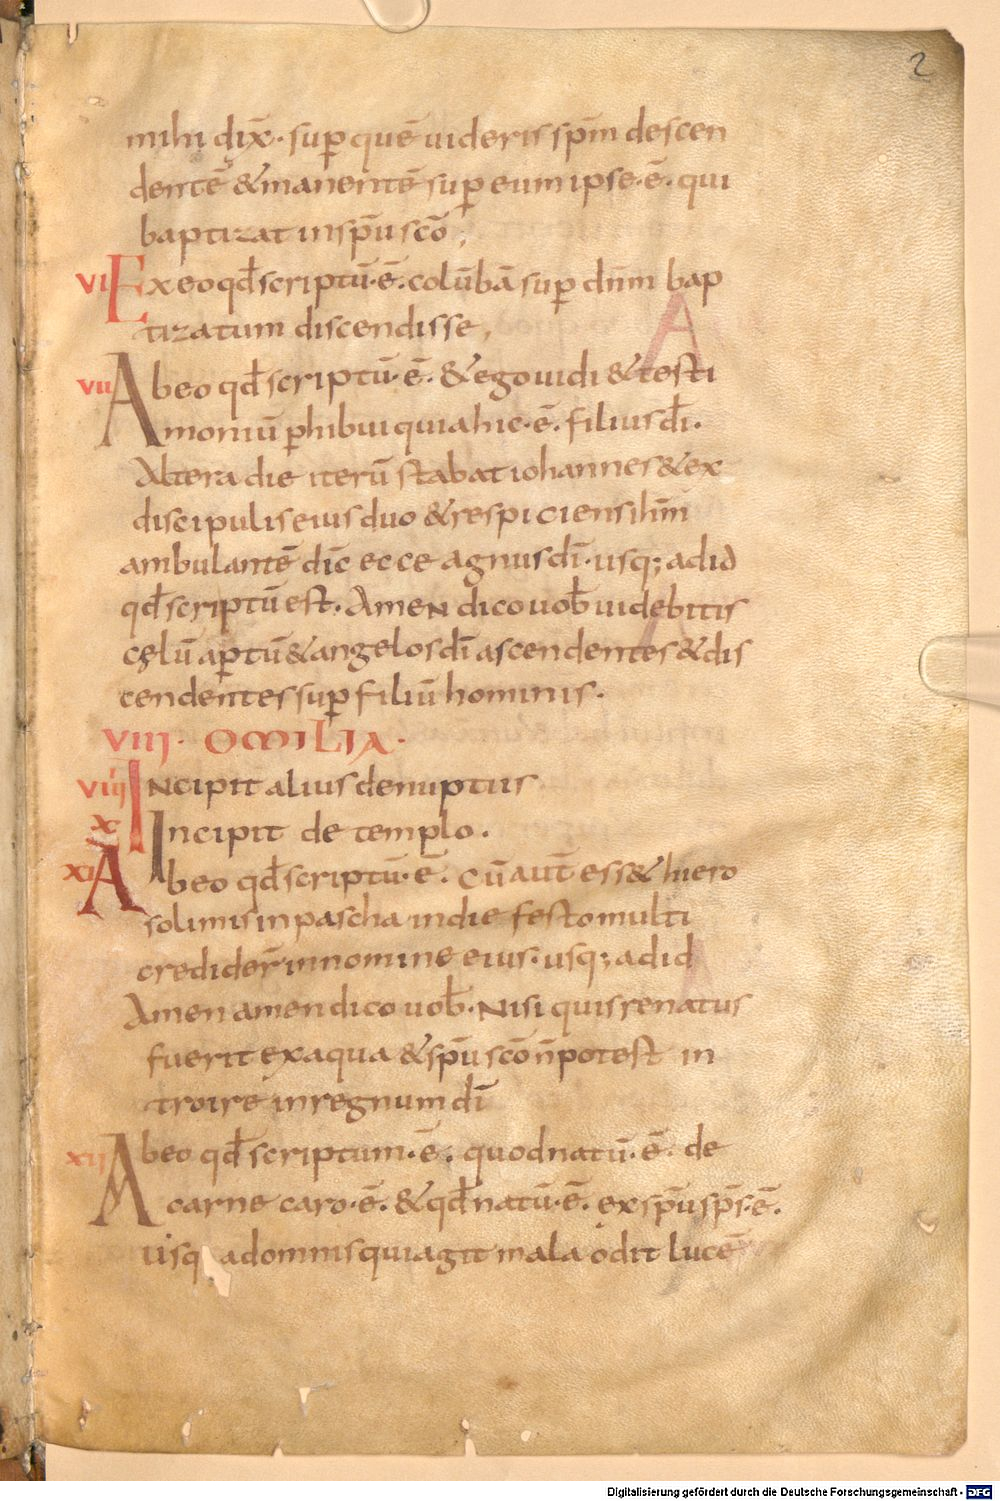 2
mihi dix̄· sup̱ quē uideris sp̄m descen
dentē &manentē sup̱ eum ipse·ē· qui
baptizat in sp̄u scō,
VI Ex eo qđ scriptū·ē· colūbā sup̱ dn̄m bap
tizatum discendisse,
VII Ab eo qđ scriptū·ē· & ego uidi & testi
monium p̱hibui quia hic·ē· filius dī·
Altera die iterū stabat iohannes & ex
discipulis eius duo & respiciens ih̄m
ambulantē dic̄ ecce agnus dī· usq; ad id
qđ scriptū est· Amen dico uob̄ uidebitis
cęlū ap̱tū & angelos dī ascendentes & dis
cendentes sup̱ filiū hominis·
VIII· OMILIA·
VIIII Incipit alius de nuptiis
X Incipit de templo·
XI Ab eo qđ scriptū·ē· Cū aut̄ ess& hiero
solimis in pascha in die festo multi
credider̄ in nomine eius· usq; ad id
Amen amen dico uob̄· Nisi quis renatus
fuerit ex aqua & sp̄u scō n̄ potest in
troire in regnum dī
XII Ab eo qđ scriptum·ē· quod natū·ē· de
carne caro·ē· & qđ natū·ē· ex sp̄u sp̄s·ē·
usq ad omnis qui agit mala odit lucē
Digitalisierung gefördert durch die Deutsche Forschungsgemeinschaft - DFG